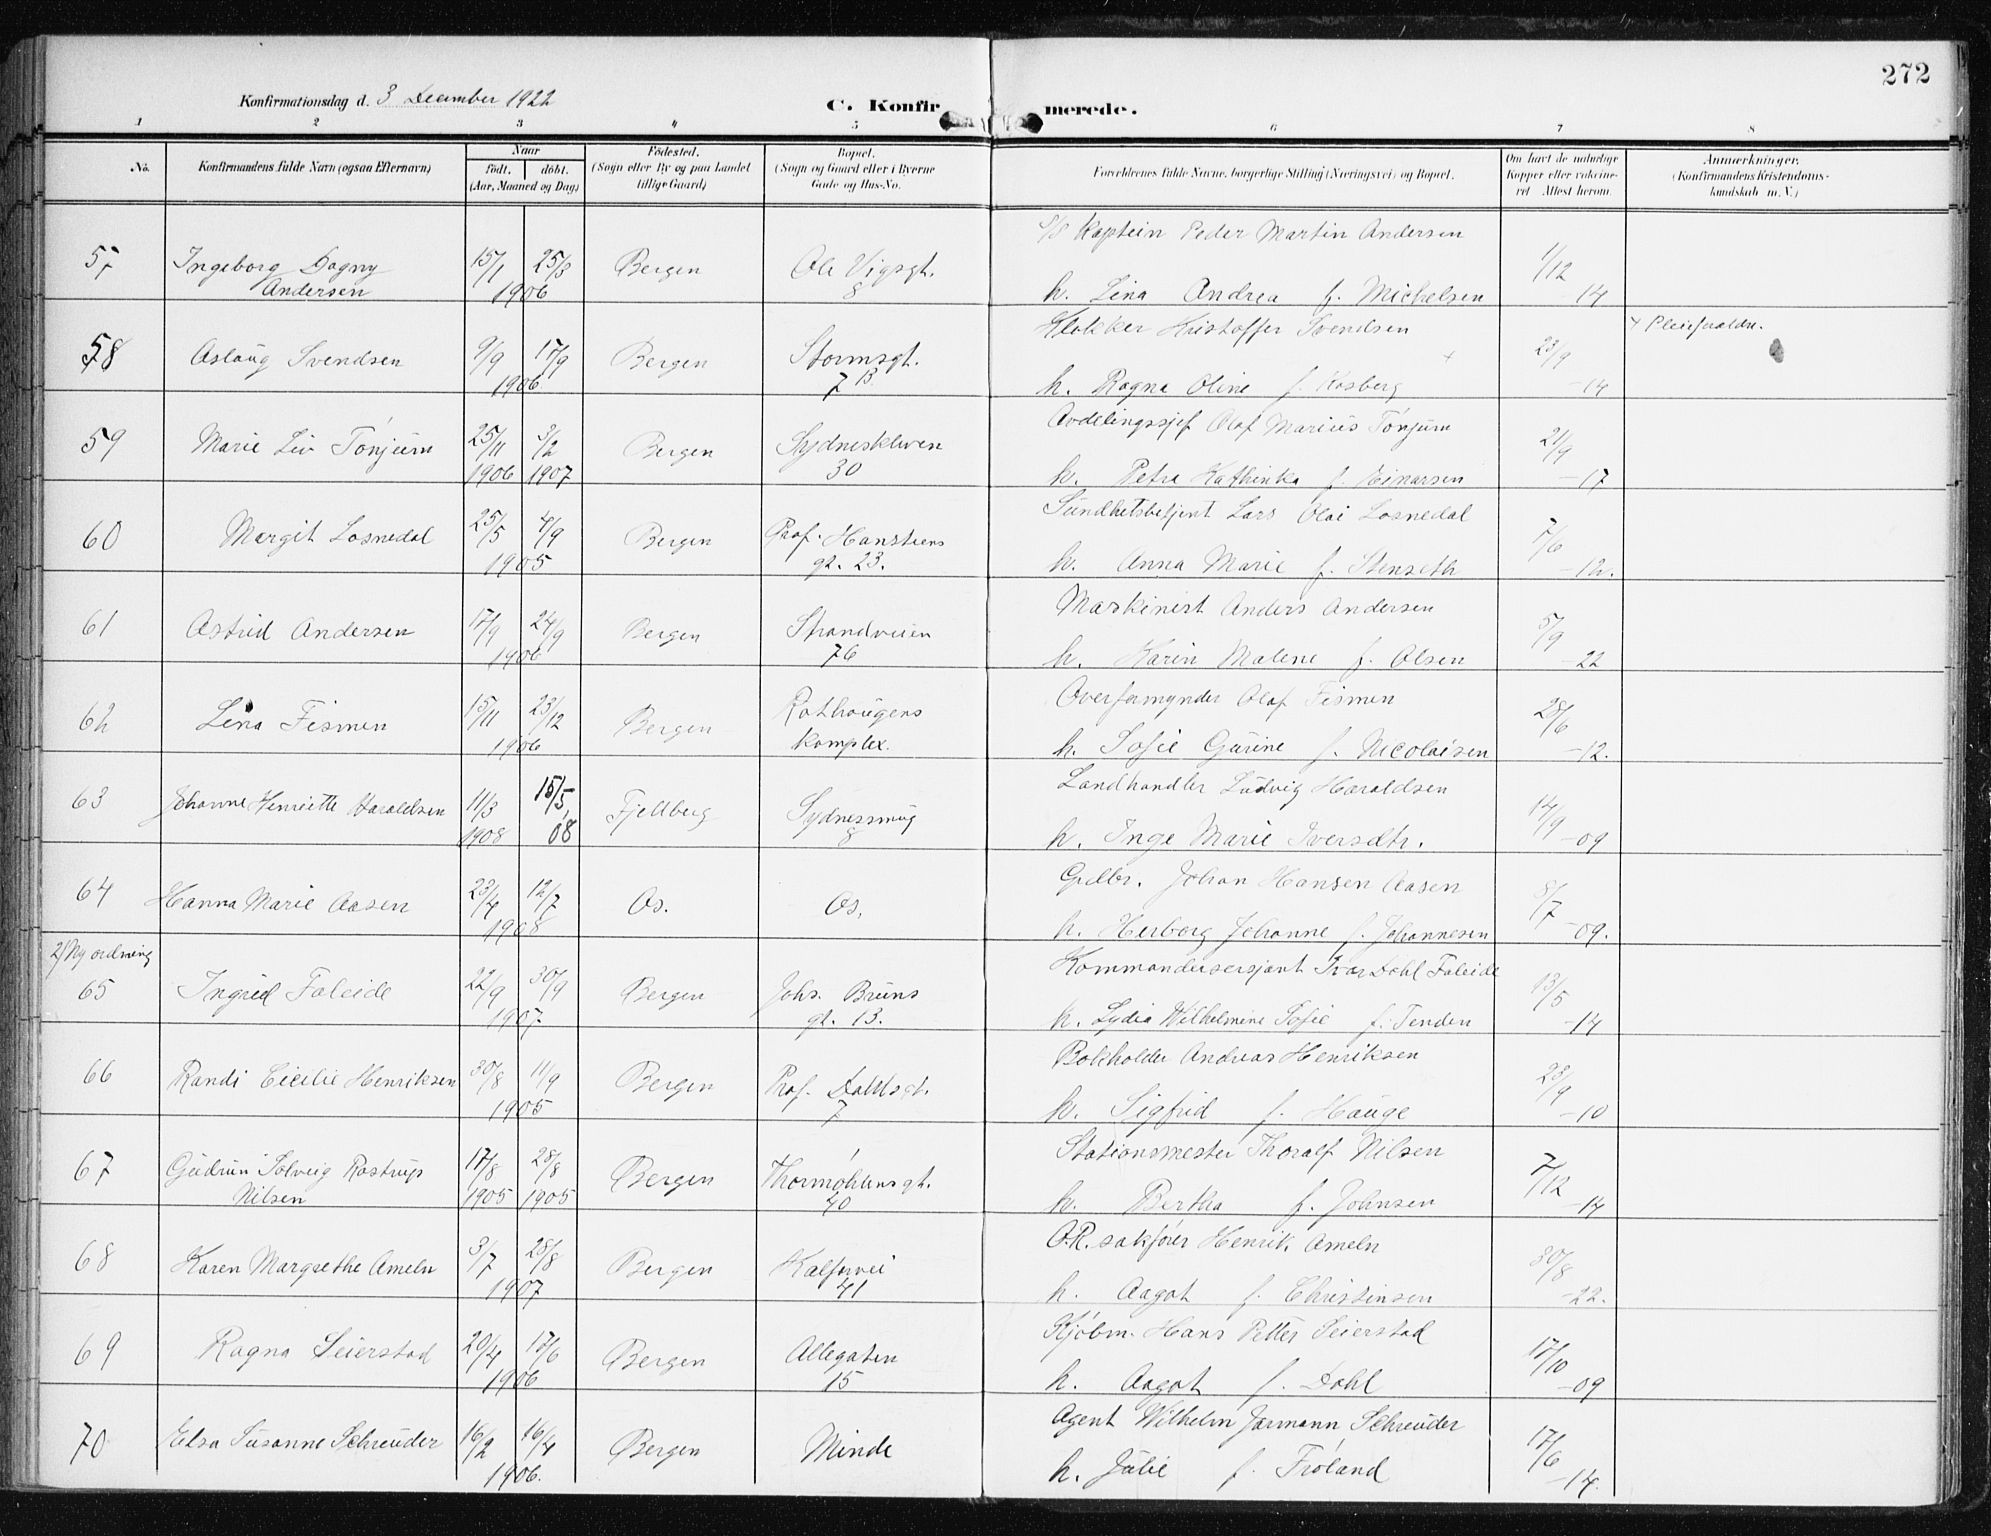 272
Konfirmationsdag d. 3 December 1922
C. Konfirmerede.
1 2 3 4 5 6 7 8
No. Konfirmandens fulde Navn (ogsaa Efternavn) Naar født. døbt. (Aar, Maaned og Dag) Fødested. (Sogn eller By og paa Landet tillige Gaard) Bopæl. (Sogn og Gaard eller i Byerne Gade og Hus-No. Forældrenes fulde Navne, borgerlige Stilling (Næringsvei) og Bopæl. Om havt de naturlige Kopper eller vakcineret Attest herom. Anmærkninger. (Konfirmandens Kristendomskundskab m. V.)
S/S Kaptein Peder Martin Andersen
57 Ingeborg Dagny 15/1 25/3 Bergen Ole Vigsgt. 1/12
Andersen 1906 8 h. Lina Andrea f. Michelsen -14
Klokker Kristoffer Svendsen + Pleieforældre.
58 Aslaug Svendsen 9/9 17/9 Bergen Stormsgt. + 23/9
1906 7 B h. Ragna Oline f. Kosberg -14
Avdelingssjef Olaf Marius Tønjum
59 Marie Liv Tønjum 25/11 3/2 Bergen Sydneskleven 21/9
1906 1907 30 h. Petra Kathinka f. Einarsen -17
Sundhetsbetjent Lars Olai Losnedal
60 Margit Losnedal 25/5 4/9 Bergen Prof. Hansteens 7/6
1905 gt. 23. h. Anna Marie f. Stenseth -12.
Maskinist Anders Andersen
61 Astrid Andersen 17/9 24/9 Bergen Strandveien 5/9
1906 76 h. Karin Malene f. Olsen -22
Overformynder Olaf Fismen
62 Lina Fismen 15/11 23/12 Bergen Rothaugens 28/6
1906 komplex. h. Sofie Gurine f. Nicolaisen -12.
Landhandler Ludvig Haraldsen
63 Johanne Henriette Haraldsen 11/3 15/5 Fjellberg Sydnessmug 14/9
1908 08 8 h. Inge Marie Iversdtr. -09
Gdbr. Johan Hansen Aasen
64 Hanna Marie Aasen 23/4 12/7 Os. Os. 8/7
1908 h. Herborg Johanne f. Johannesen -09.
2/ Ny ordning
Kommandersersjant Ivar Dahl Faleide
65 Ingrid Faleide 22/9 30/9 Bergen Johs. Bruns 13/5
1907. gt. 13. h. Lydia Wilhelmine Sofie f. Tenden -14
Bokholder Andreas Henriksen
66 Randi Cicilie Henriksen 30/8 11/9 Bergen Prof. Dahlsgt. 23/9
1905 7 h. Sigfrid f. Hauge -10
Stationsmester Thoralf Nilsen
67 Gudrun Solveig Rostrup 17/8 28/8 Bergen Thormøhlensgt. 7/12
Nilsen 1905 1905 40 h. Bertha f. Johnsen -14
O.R. sakfører Henrik Ameln
68 Karen Margrethe Ameln 3/7 28/8 Bergen Kalfarvei 30/8
1907 41 h. Aagot f. Christensen -22.
Kjøbm. Hans Petter Seierstad
69 Ragna Seierstad 20/4 17/6 Bergen Allegaten 17/10
1906 15 h. Aagot f. Dahl -09
Agent Wilhelm Jarmann Schreuder
70 Elsa Susanne Schreuder 16/2 16/4 Bergen Minde 17/6
1906. h. Julie f. Frøland -14.